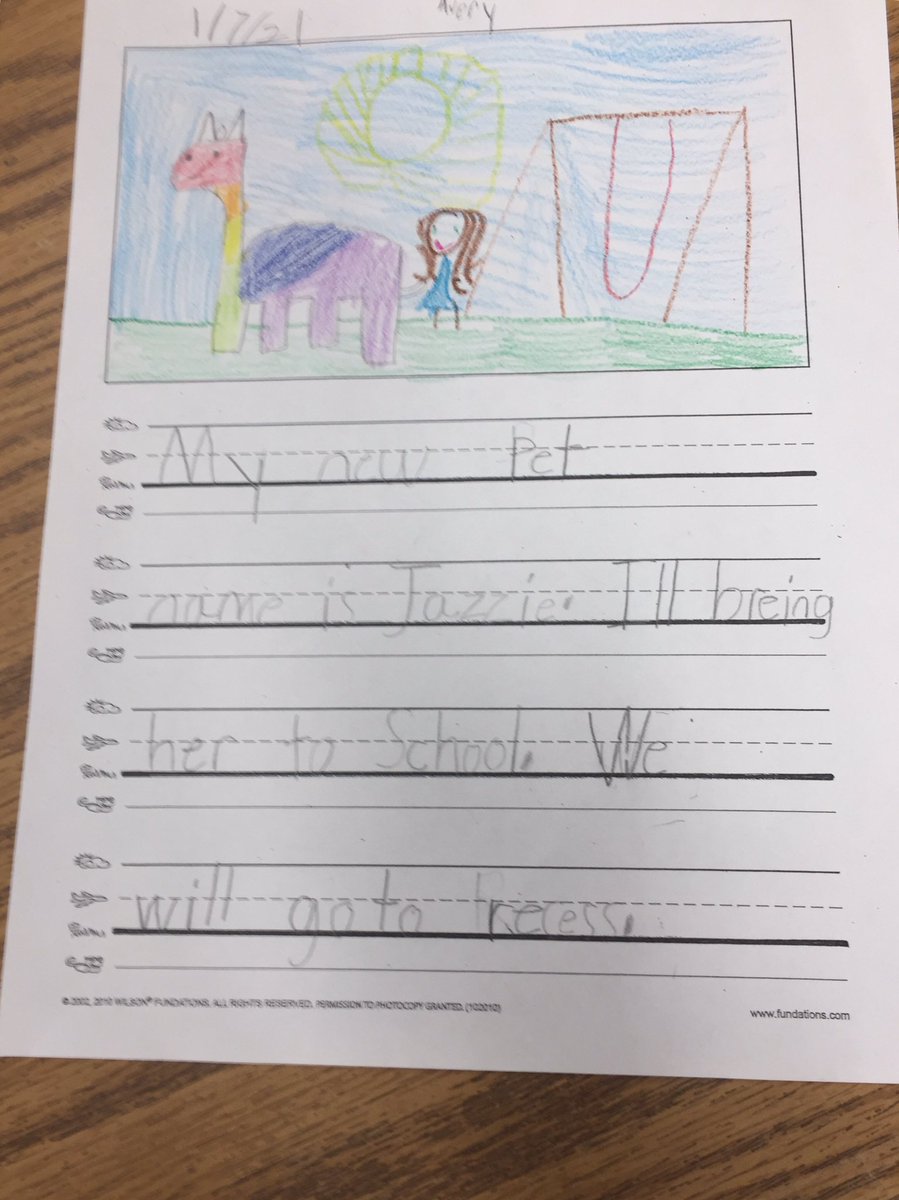 1/7/21 Avery
My new Pet
name is Jazzie. I'll breing
her to School. We
will go to recess.
© 2002, 2010 WILSON® FUNDATIONS. ALL RIGHTS RESERVED. PERMISSION TO PHOTOCOPY GRANTED. (102010)
www.fundations.com